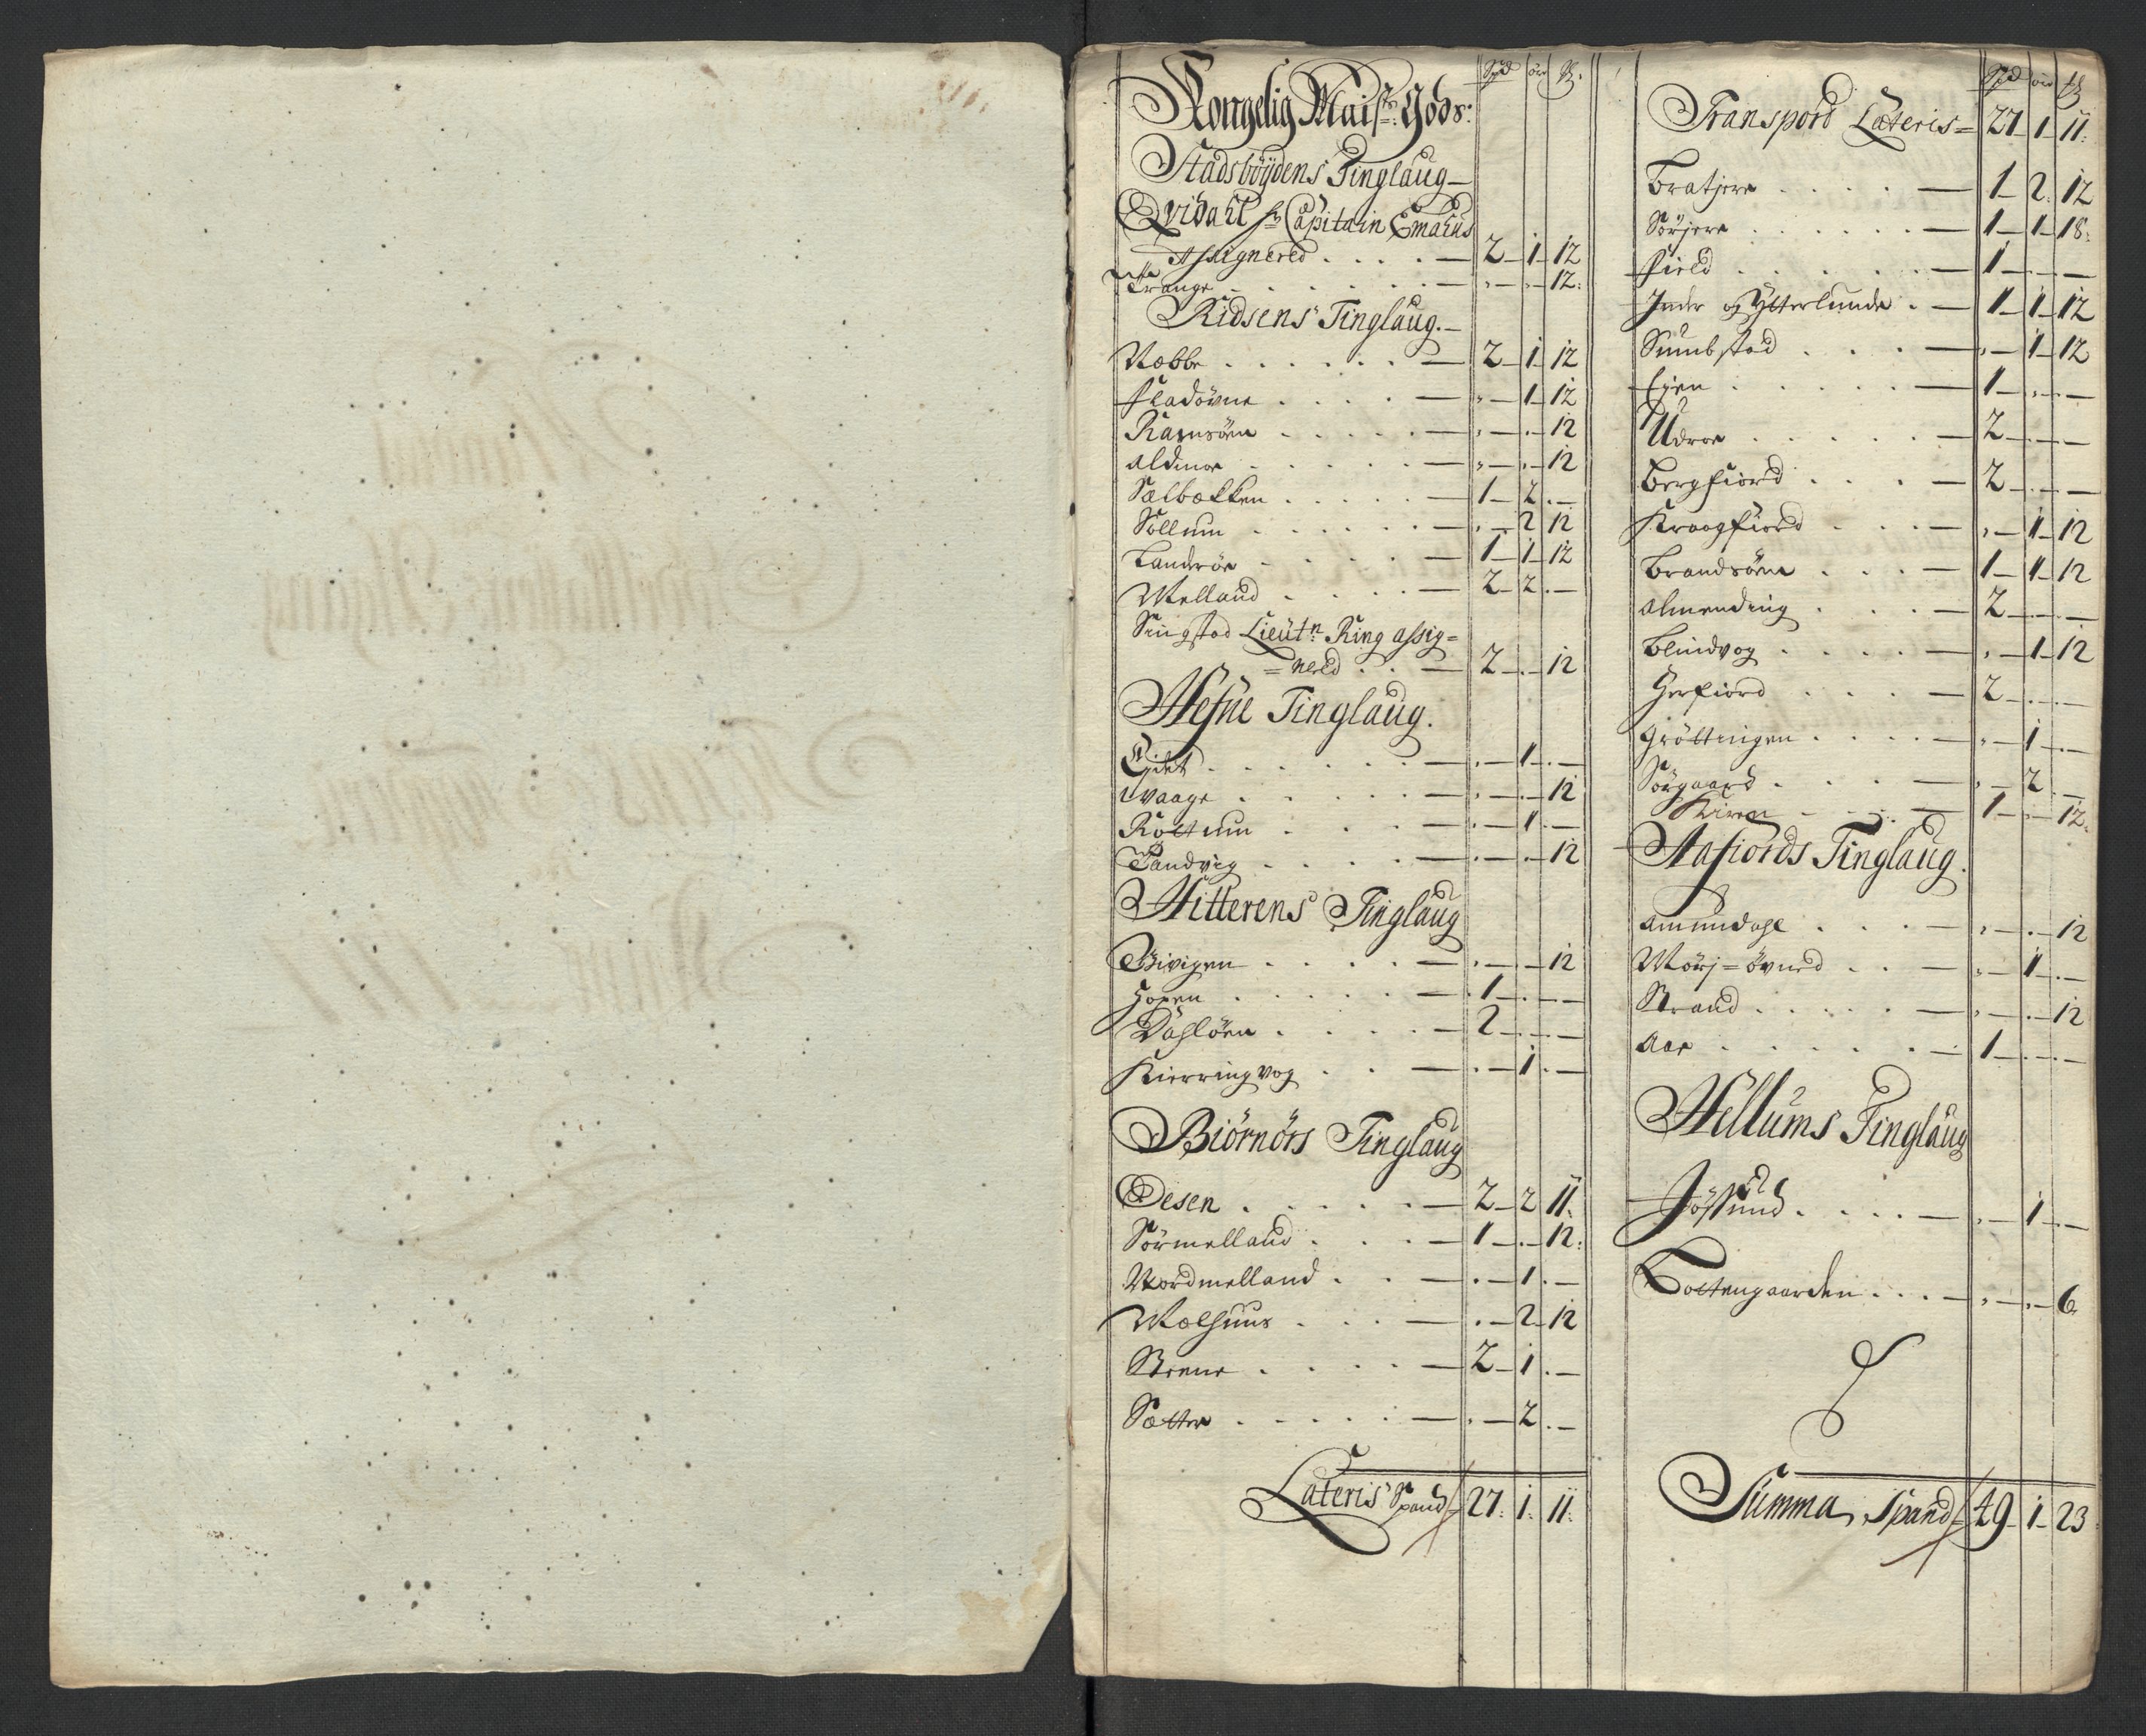 Spd ør ₥.
Kongelig Maists. Gods:
Stadsböÿdens Tinglaug –
Qvidahl hr Capitain Emahus
Assignered . . . . — 2 – 1 – 12
Krange . . . . . — . – . – 12:
Ridsens Tinglaug. –
Næbbe . . . . . — 2 – 1 12
Fladövne . . . . — . – 1 – 12
Ramsöen . . . . — . – . – 12
Aldmoe . . . . — . – . – 12
Sælbækken . . . . — 1 – 2 . –
Sollum . . . . — . – 2 12
Landröe . . . . — 1 – 1 – 12
Melland . . . . — 2 – 2 . –
Sungstad Lieutn: Ring assig=
= nered . . — 2 – . – 12
Hefne Tinglaug.
Eidet . . . . . — . – 1 . –
Waage . . . . — . – . – 12
Röstum . . . — . – 1 . –
Sandvig . . . . — . – . – 12
Hitterens Tinglaug
Bivigen . . . . — . – . – 12
Hopen . . . . — 1 – . – –
Dahlöen . . . . — 2 – . – –
Kierringvog . . — . – 1 . –
Biörnörs Tinglaug
Oesen . . . . . — 2 – 2 11.
Sörmelland . . . — 1 – . – 12:
Nordmelland . . — . – 1 . –
Mælhuus . . . — . – 2 – 12
Brene . . . . — 2 – 1 . –
Sætter . . . . . — . – 2 . –
Lateris Spand 27: 1. 11.
Spd ør ₥
Transpord Lateris = 27 – 1 11.
Bratjere . . . . — 1 – 2. 12
Sörjere . . . . . — 1 – 1 – 18:
Field . . . . . — 1 – . – –
Inder og Ytterlunde . – 1 – 1 – 12
Sumbstad . . . — . – 1 – 12
Eijen . . . . — 1 – . – –
Udroe . . . . . — 2 – . – –
Bergfiord . . . — 2 – . – –
Kraagfiord . . . — . – 1 – 12
Brandsöen . . . — 1 – 1 – 12
Almending . . . — 2 – . – –
Blindvog . . . . — . – 1 – 12
Herfiord . . . — 2 – . – –
Gröttingen . . . . — . – 1 . –
Sörgaard . . . — . – 2 . –
Kiren . . . . — 1 – . – 12.
Aafiords Tinglaug.
Amundahl . . . — . – . – 12
Mörj = övned . . — . – 1 . –
Strand . . . . . — . – . – 12
Aae . . . . . — 1 – . – –
Hellums Tinglaug
Jössund . . . . — . – 1 . –
Tostengaarden . . . — . – . – 6
Summa Spand 49 – 1 – 23